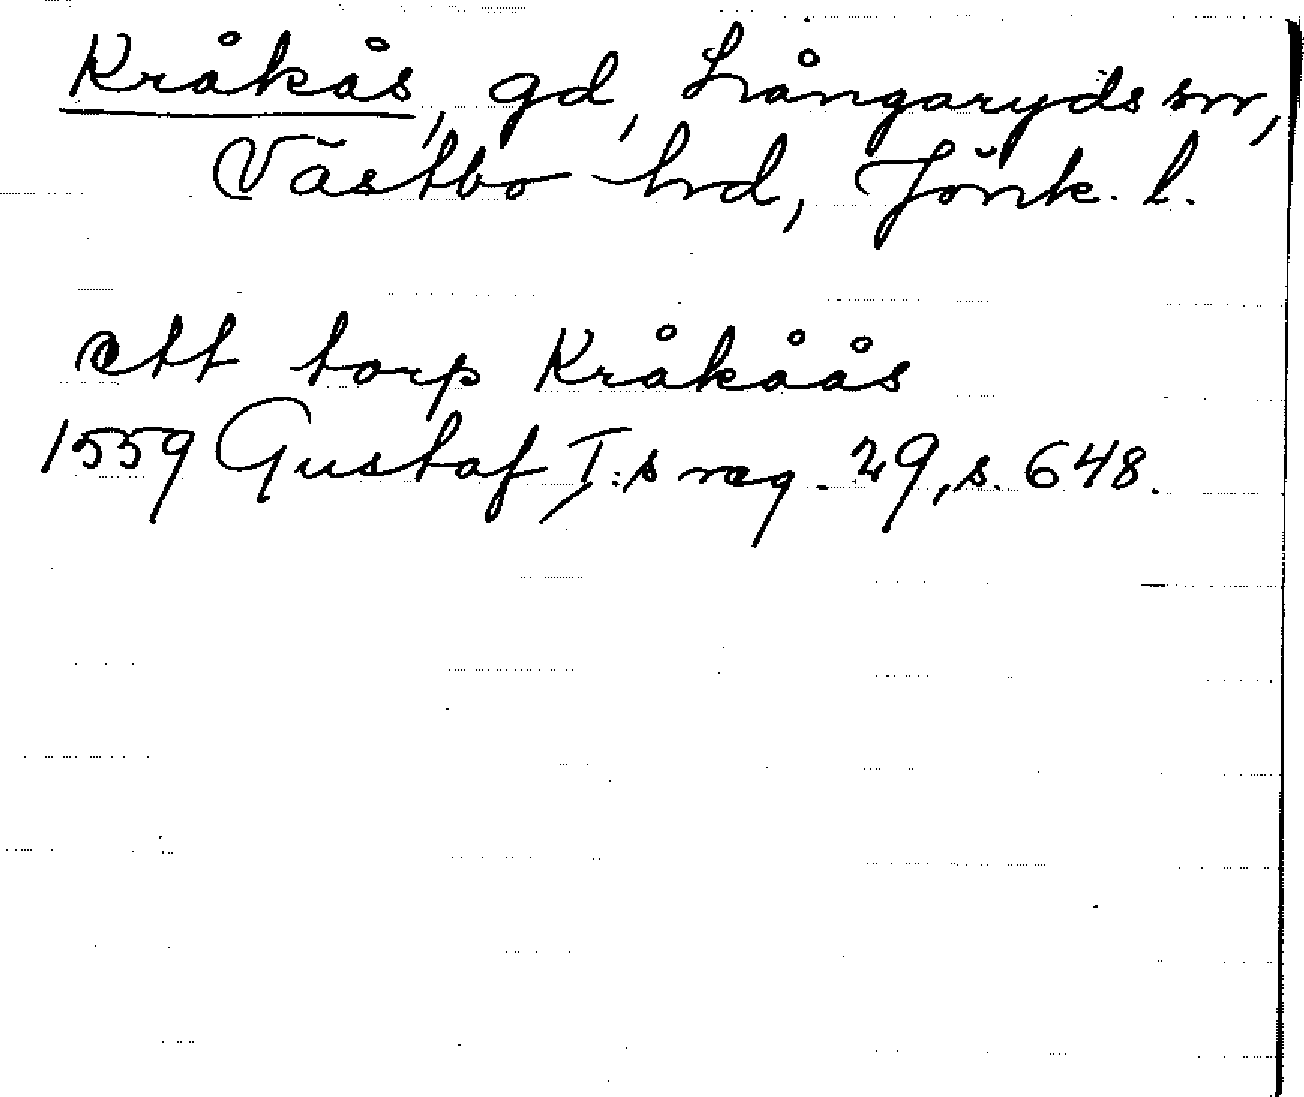 Kråkås, gd, Långaryds sn,
Västbo hd, Jönk. l.
ett torp Kråkåås
1559 Gustaf I:s reg. 29, s. 648.